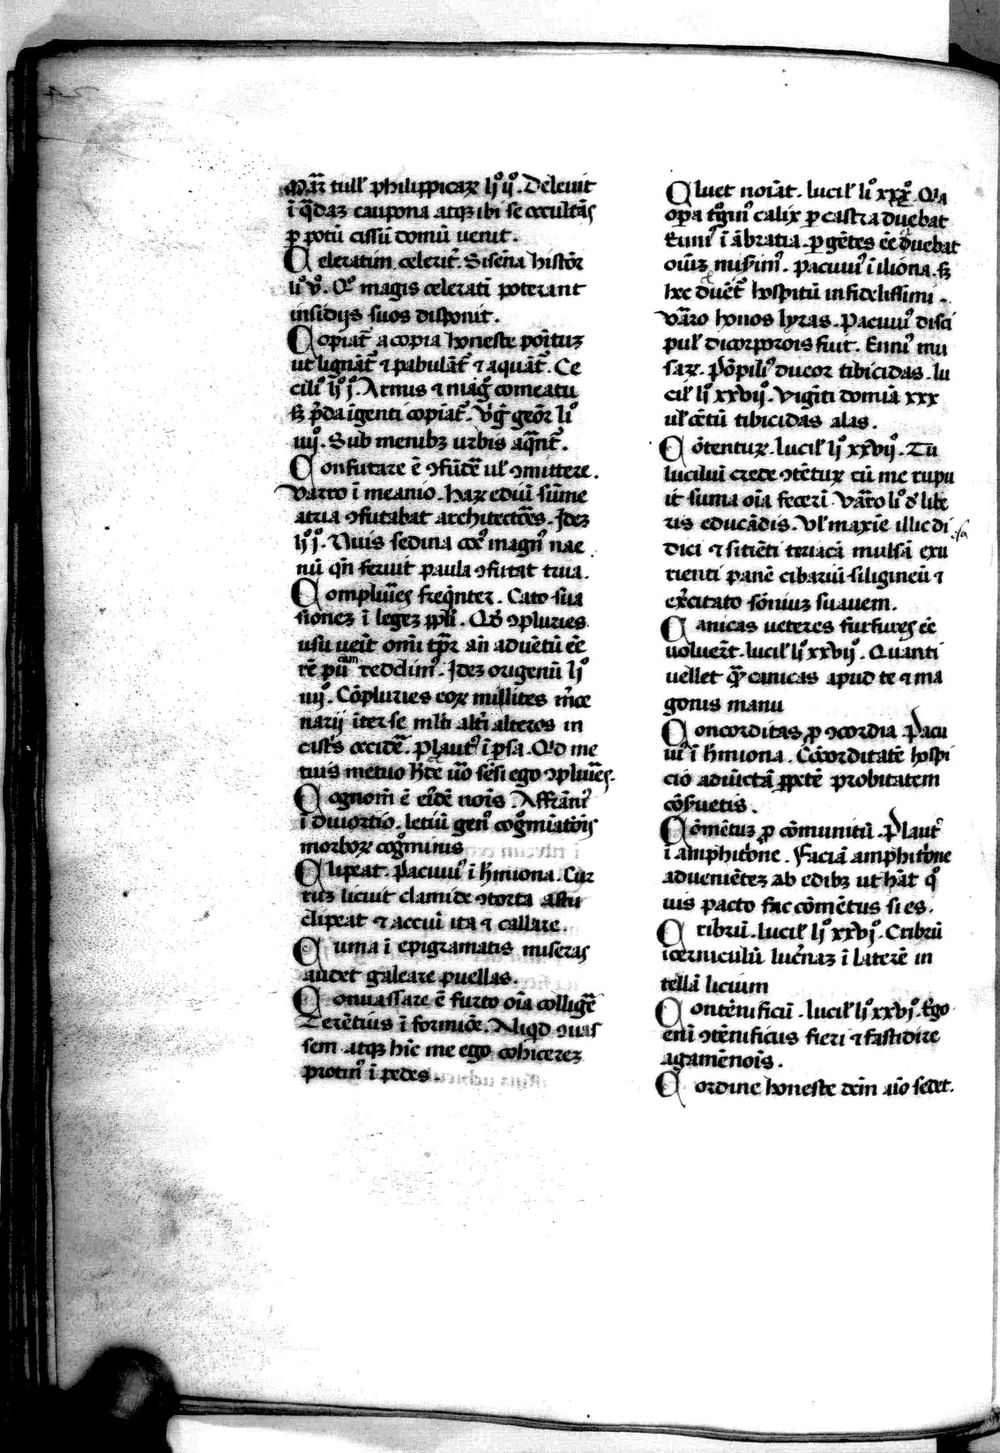 Mar̄ tull̕ philippicaꝝ li̊ ij̊. Deleuit
ī q̄daꝫ caupona atqꝫ ibi se occultās
ꝑ potū cissiū domū uenit.
Celeratim celerit̄. Sisena histor̄
li̊ v̊. Qꝰ magis celerati poterant
insidijs suos disponit.
Copiat̄ a copia honeste poītuꝫ
ut lignāt̄ ⁊ pabulāt̄ ⁊ aquāt̄. Ce
cili̊ li̊ j̊. Armis ⁊ maḡ comeatu
sꝫ p̄da īgenti copiat̄. Vḡ geor̄ li̊
iiij̊. Sub menibꝫ urbis aq̄nt̄.
Confutare ē ꝯfūdē ul̕ ꝯmittere.
Varro ī meanio. haꝝ
atria ꝯfutabat architectōes. Jdeꝫ
li̊ j̊. Nuis sedina magnꝰ nae
nū qn̄ feruit paula ꝯfutat trua.
Compluries freq̄nter. Cato sua
sioneꝫ ī legeꝫ ppl̄i. Qd̄ ꝯpluries
usu ueit omī tp̄r an̄ aduētū ēē
rē pu reddim̄. Jdeꝫ origenū li̊
iiij̊. Cōpluries eoꝝ millites m̄ce
narij īter se ml̄ti alt̄i alteros in
cist̄s occidē. Plautꝰ ī pſa. Qd me
tuis metuo sēsi ego ꝯpluries.
Cognom̄ ē eīdē nois̄. Affrāniꝰ
ī diuortio. letiū genꝰ cogmiatōis
morboꝝ cogminis
Clipeat. Pacuuiꝰ ī hm̄iona. Cur
rus licuit clamide ꝯtorta astu
clipeat ⁊ accui ita ⁊ callare.
Cuma ī epigramatis miseras
audet galeare puellas.
Conuassare ē furto oīa colligē
Terētius ī formiōe. Aliqd ꝯuas
sem atqꝫ hīc me ego cohicereꝫ
protinꝰ ī pedes.
Cluet noīat. lucil̕ li̊ xxx̊. Qa
opa calix ꝑ castra duebat
Enniꝰ ī ābratia. ꝑ gētes ēē duebat
oīuꝫ misim̄. Pacuuiꝰ ī iliona. sꝫ
hec duēt̄ hospitū infidelissimi.
Varro honos lyras. Pacuuiꝰ disci
pul̕ dicorporois fiut. Enniꝰ mu
saꝝ. Pōpiliꝰ ducor tibicidas. lu
cil̕ li̊ xxviij̊. Vigīti domiā xxx
ul̕ cētū tibicidas alas.
Cōtentuꝝ. lucil̕ li̊ xxvij̊. Tu
luciliuī crede ꝯtētuꝝ cū me rupu
it sūma oīa fecerī. Varro li̊ d̕ libe
ris educādis. Vl̕ maxīe illic di
dici ⁊ sitiēti teriacā mulsā exu
rienti panē cibariū siligineū ⁊
exc̄itato sōniuꝫ suauem.
Canicas ueteres furfures ēē
uoluer̄t. lucil̕ li̊ xxvij̊. Quanti
uellet q̄ canicas apud te ⁊ ma
gonis manu
Concorditas ꝓ ꝯcordia. Pacu
uiꝰ ī hm̄iona. Cōcorditatē hospi
cio aduictā ꝑpetē probitatem
cōseruetis.
Cōmētuꝫ ꝓ cōmunitū. Plautꝰ
ī amphitrōne. Faciā amphitrōne
adueniēteꝫ ab edibꝫ ut hāt qꝰ
uis pacto fac cōmētus si es.
Cribrū. lucil̕ li̊ xxvj̊. Cribrū
īcerniculū luc̄naꝫ ī laterē in
tellā licium
Contēnificiū. lucil̕ li̊ xxvj̊. Ego
enī ꝯtēnificus fieri ⁊ fastidire
agamēnois̄.
Cordine honeste dein aīo sedet.